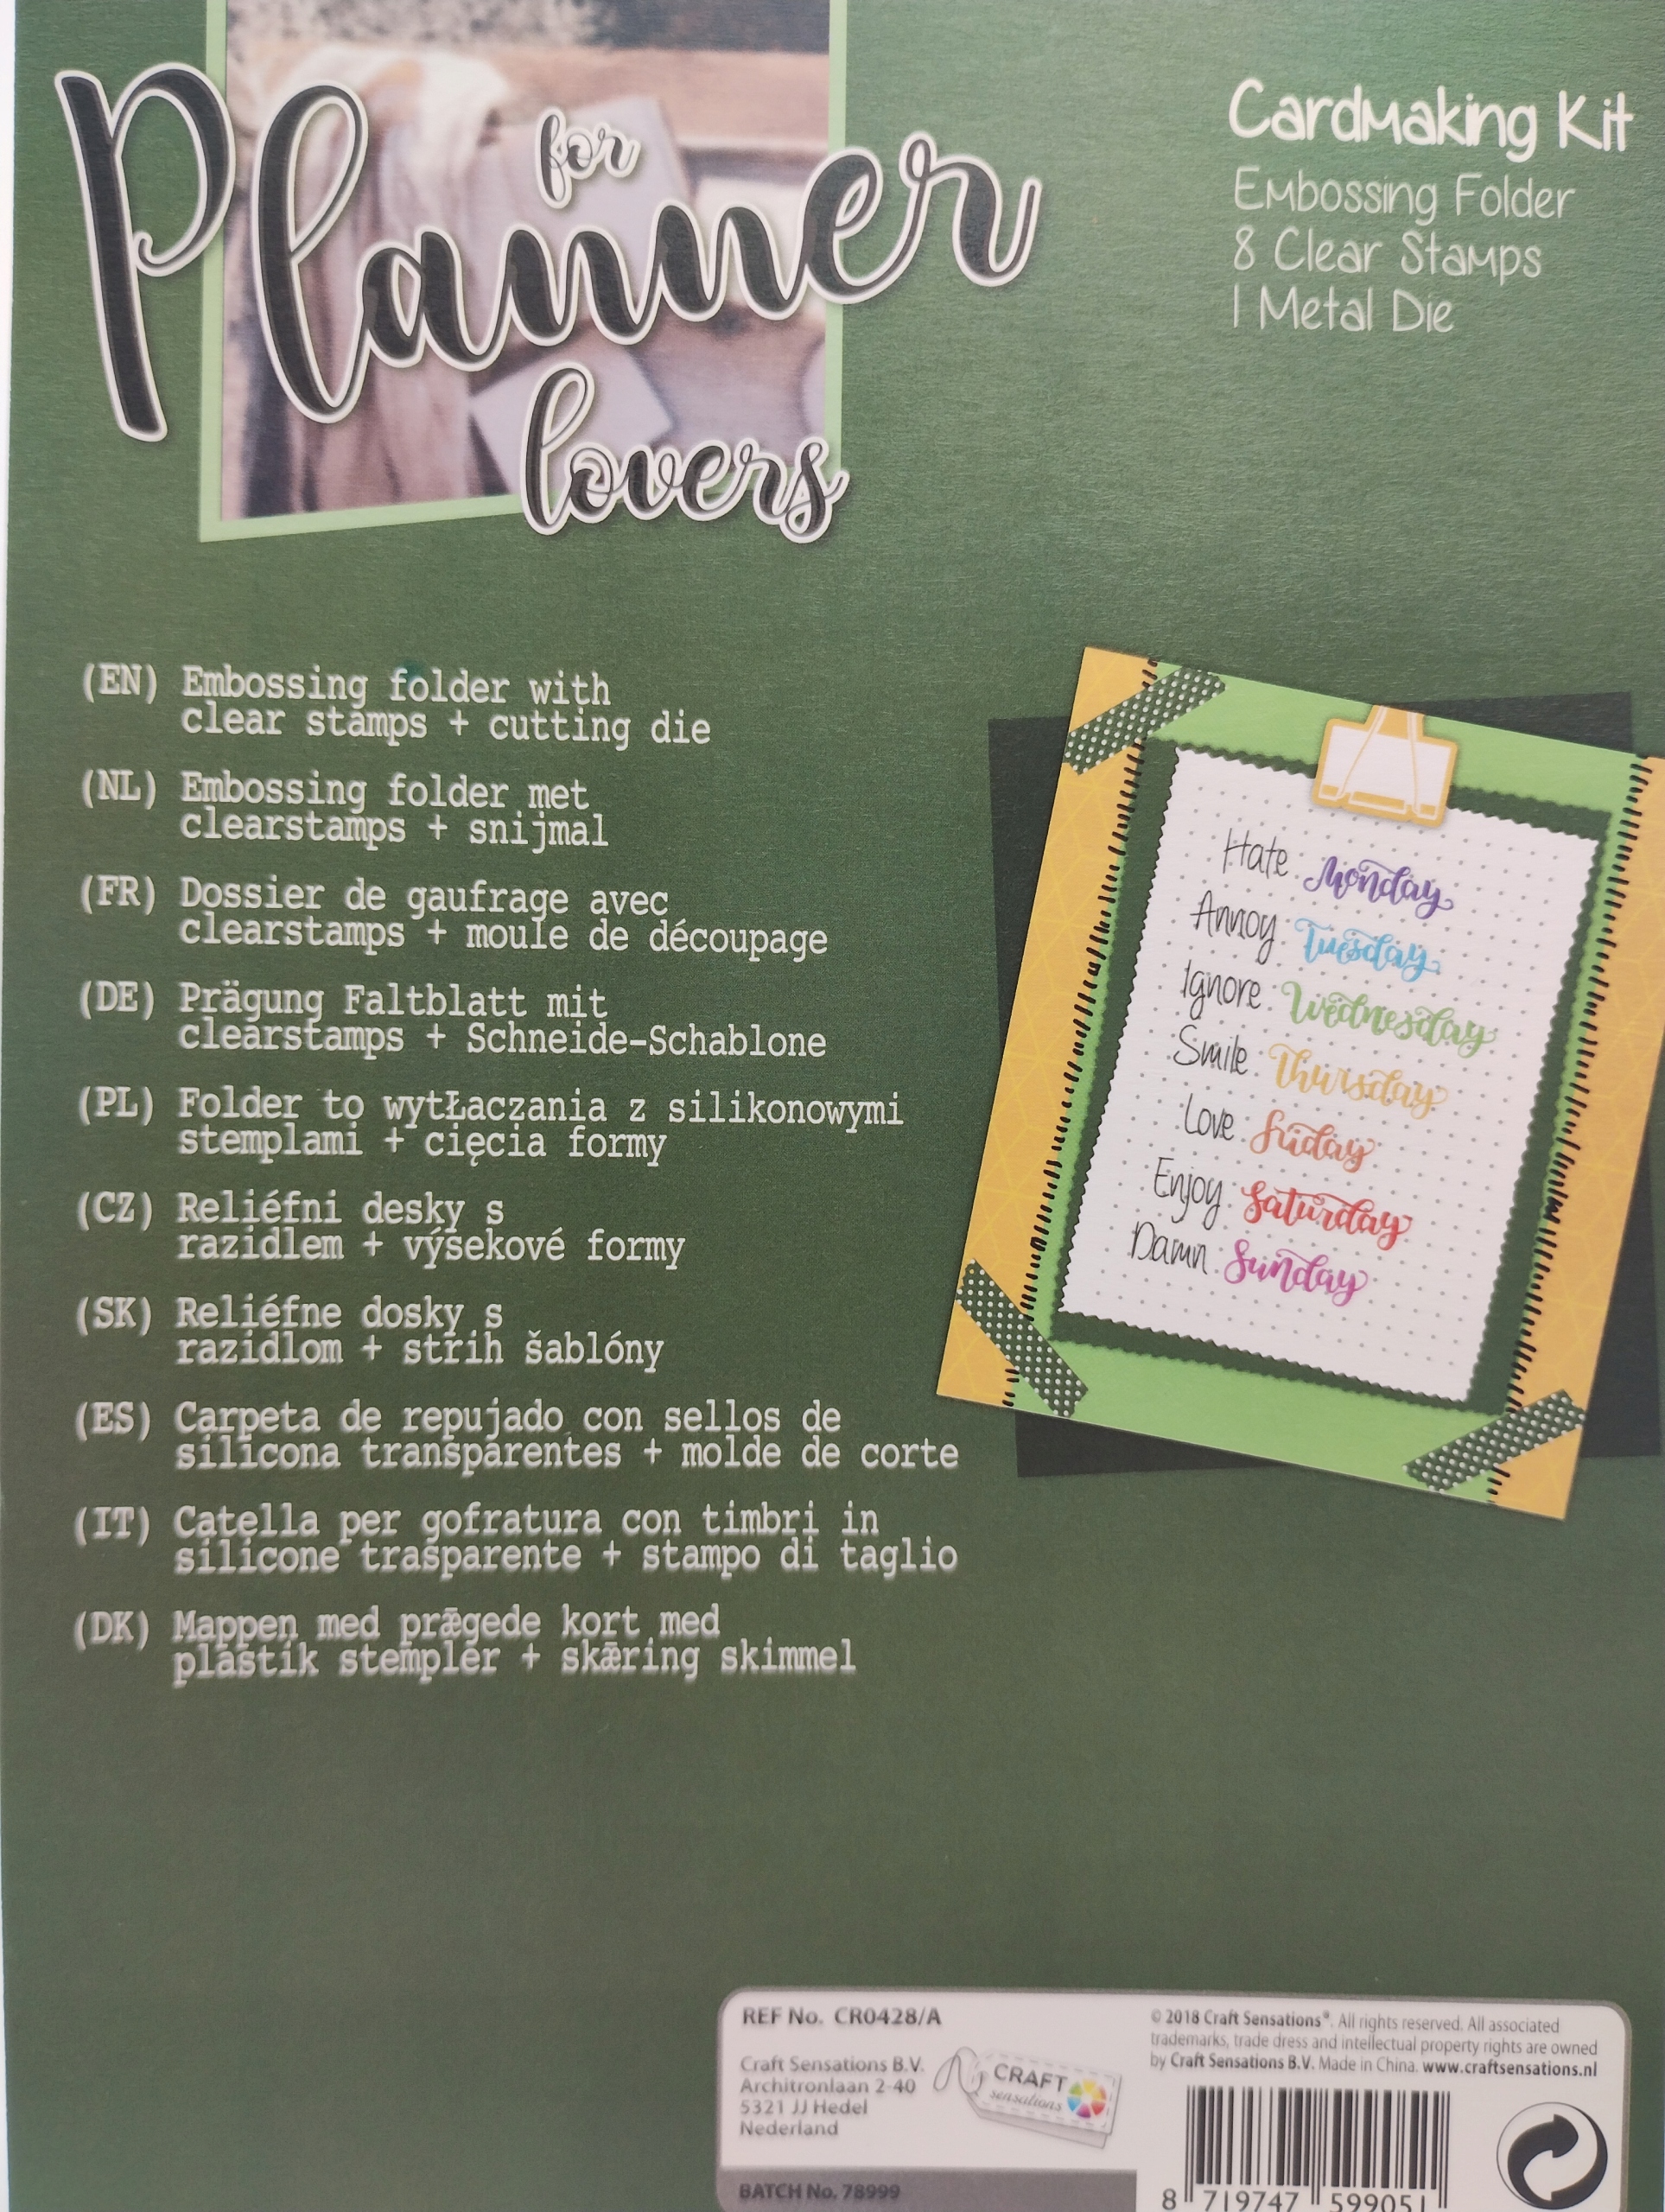 Planner
for
lovers
Cardmaking Kit
Embossing Folder
8 Clear Stamps
1 Metal Die
(EN) Embossing folder with
clear stamps + cutting die
(NL) Embossing folder met
clearstamps + snijmal
(FR) Dossier de gaufrage avec
clearstamps + moule de découpage
(DE) Prägung Faltblatt mit
clearstamps + Schneide-Schablone
(PL) Folder to wytŁaczania z silikonowymi
stemplami + cięcia formy
(CZ) Reliéfni desky s
razidlem + výsekové formy
(SK) Reliéfne dosky s
razidlom + strih šablóny
(ES) Carpeta de repujado con sellos de
silicona transparentes + molde de corte
(IT) Catella per gofratura con timbri in
silicone trasparente + stampo di taglio
(DK) Mappen med prǣgede kort med
plastik stempler + skǣring skimmel
Hate Monday
Annoy Tuesday
Ignore Wednesday
Smile Thursday
Love Friday
Enjoy Saturday
Damn Sunday
REF No. CR0428/A
Craft Sensations B.V.
Architronlaan 2-40
5321 JJ Hedel
Nederland
CRAFT
sensations
BATCH No. 78999
© 2018 Craft Sensations®. All rights reserved. All associated
trademarks, trade dress and intellectual property rights are owned
by Craft Sensations B.V. Made in China. www.craftsensations.nl
8 719747 599051